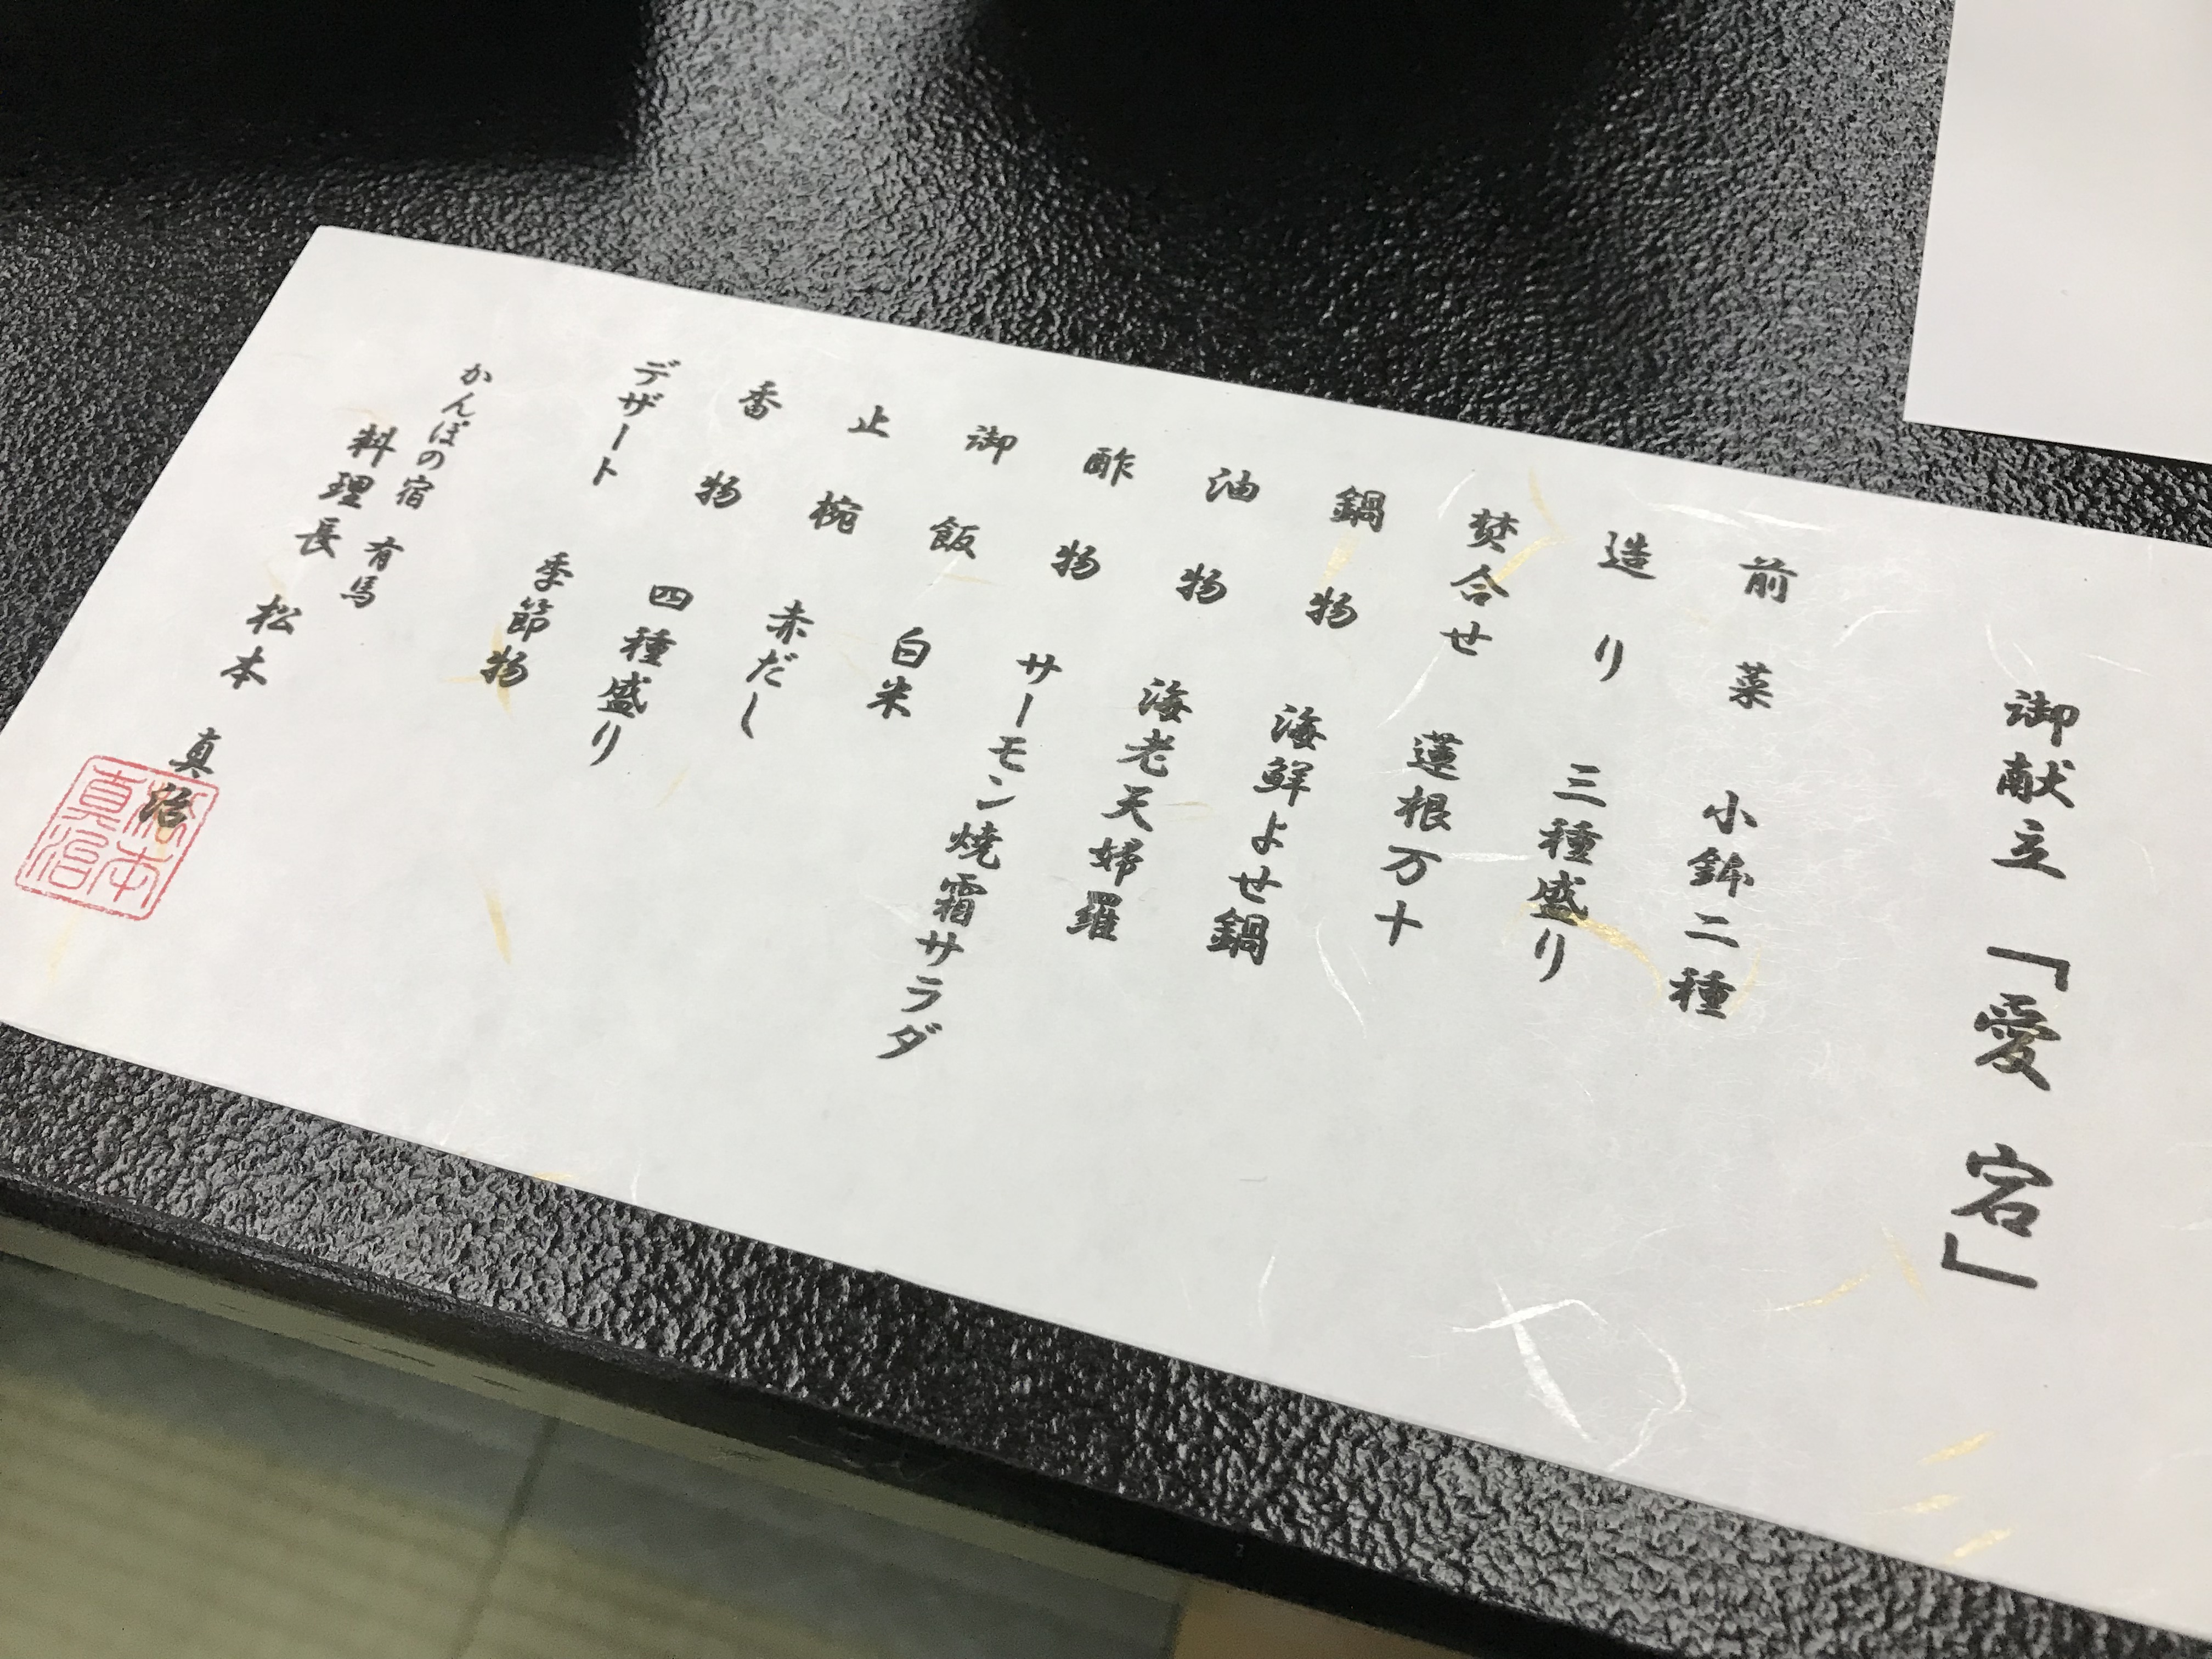 御献立「愛宕」
前菜 小鉢二種
造り 三種盛り
焚合せ 蓮根万十
鍋物 海鮮よせ鍋
油物 海老天婦羅
酢物 サーモン焼霜サラダ
御飯 白米
止椀 赤だし
香物 四種盛り
デザート 季節物
かんぽの宿 有馬
料理長 松本 真治
松本
真治